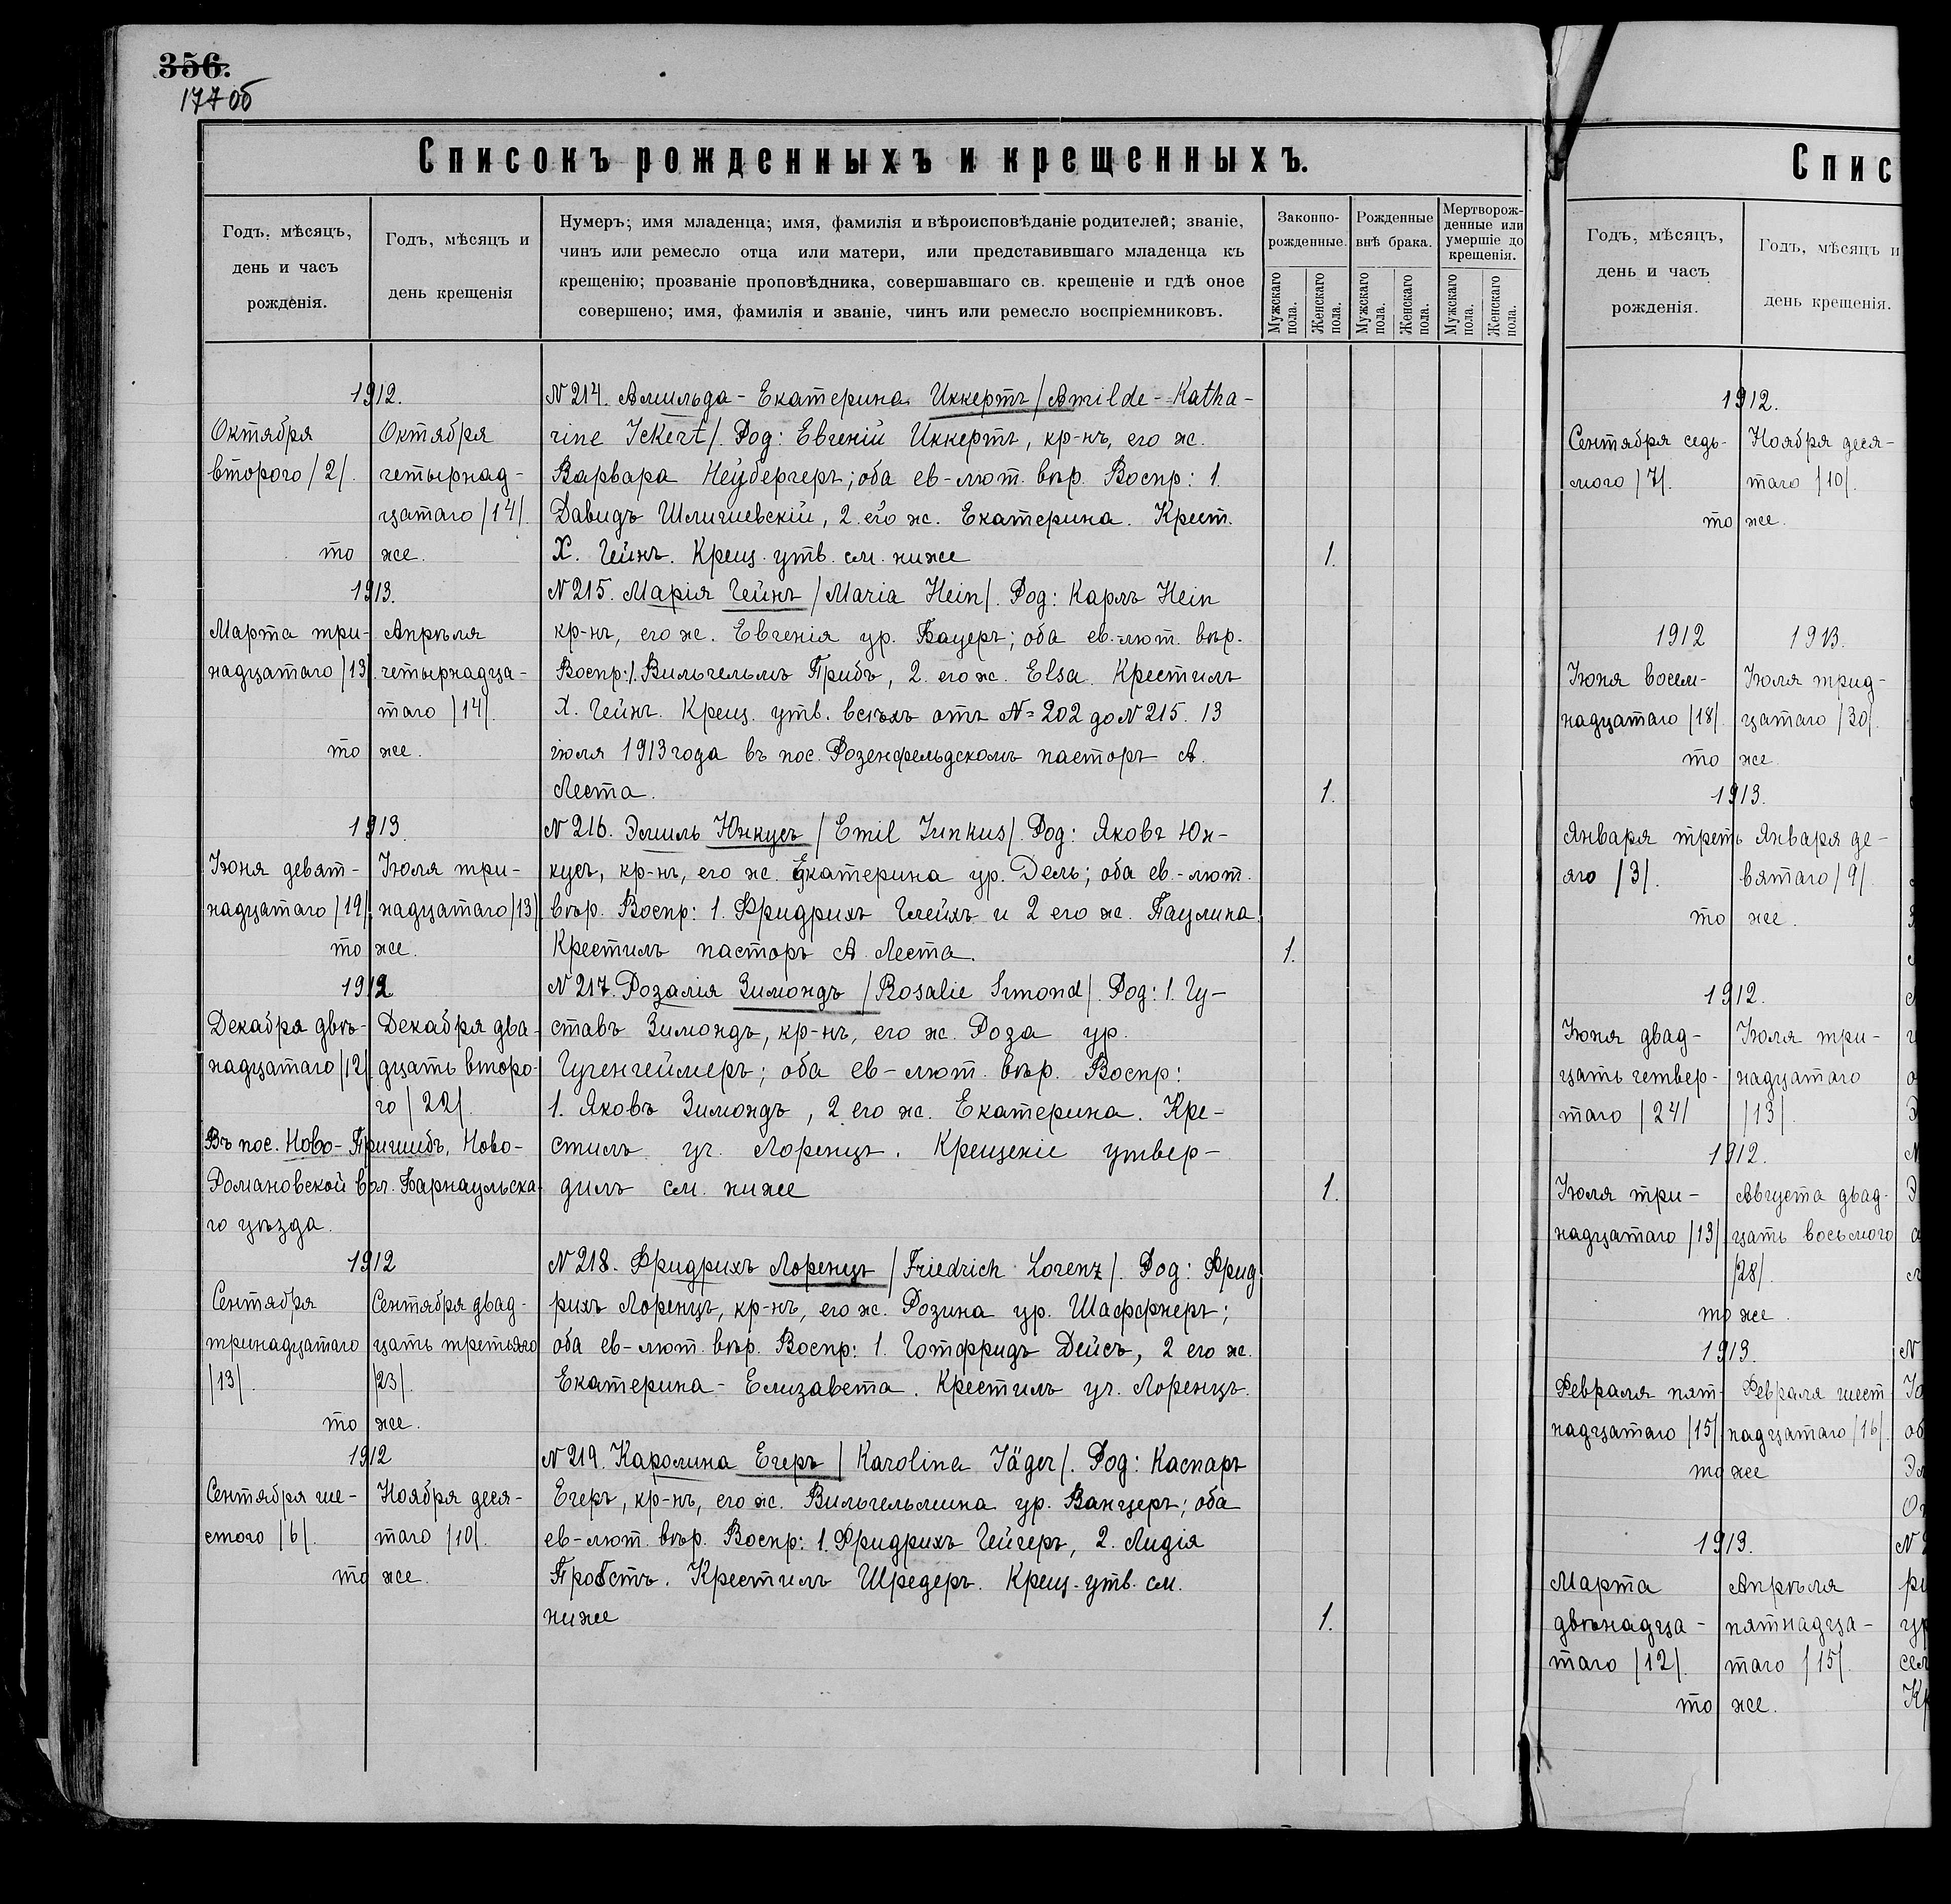 356.
177 об
Списокъ рожденныхъ и крещенныхъ.
Годъ, мѣсяцъ,
день и часъ
рожденія.
Годъ, мѣсяцъ и
день крещенія
Нумеръ; имя младенца; имя, фамилія и вѣроисповѣданіе родителей; званіе,
чинъ или ремесло отца или матери, или представившаго младенца къ
крещенію; прозваніе проповѣдника, совершавшаго св. крещеніе и гдѣ оное
совершено; имя, фамилія и званіе, чинъ или ремесло воспріемниковъ.
Законно-
рожденные.
Рожденные
внѣ брака.
Мертворож-
денные или
умершіе до
крещенія.
Мужскаго пола.
Женскаго пола.
Мужскаго пола.
Женскаго пола.
Мужскаго пола.
Женскаго пола.
1912.
Октября
второго /2/.
Октября
четырнад-
цатаго /14/.
то же.
N 214. Амильда - Екатерина Иккертъ /Amilde - Katha-
rine Ickert/. Род: Евгеній Иккертъ, кр-нъ, его ж.
Варвара Нейбергеръ; оба ев-лют. вѣр. Воспр: 1.
Давидъ Шлигиевскій, 2. его ж. Екатерина. Крест.
Х. Гейнъ. Крещ. утв. см. ниже
1.
1913.
Марта три-
надцатаго /13/.
Апрѣля
четырнадца-
таго /14/.
то же.
N 215. Марія Гейнъ /Maria Hein/. Род: Карлъ Hein
кр-нъ, его ж. Евгенія ур. Бауеръ; оба ев.-лют. вѣр.
Воспр: 1. Вильгельмъ Грибъ, 2. его ж. Elsa. Крестилъ
Х. Гейнъ. Крещ. утв. всѣхъ отъ N= 202 до N 215. 13
іюля 1913 года въ пос. Розенфельдскомъ пасторъ А.
Леста.
1.
1913.
Іюня девят-
надцатаго /19/.
Іюля три-
надцатаго /13/
то же.
N 216. Эмиль Юнкусъ /Emil Junkus/. Род: Яковъ Юн-
кусъ, кр-нъ, его ж. Екатерина ур. Дель; оба ев.-лют.
вѣр. Воспр: 1. Фридрихъ Глейхъ и 2 его ж. Паулина.
Крестилъ пасторъ А. Леста.
1.
1912
Декабря двѣ-
надцатаго /12/.
Декабря два-
дцать второ-
го /22/.
Въ пос. Ново-Пришибъ, Ново-
Романовской вол. Барнаульска-
го уѣзда.
N 217. Розалія Зимондъ /Rosalie Simond/. Род: 1. Гу-
ставъ Зимондъ, кр-нъ, его ж. Роза ур.
Гугенгеймеръ; оба ев-лют. вѣр. Воспр:
1. Яковъ Зимондъ, 2 его ж. Екатерина. Кре-
стилъ уч. Лоренцъ. Крещеніе утвер-
дилъ см. ниже
1.
1912
Сентября
тринадцатаго
/13/.
Сентября двад-
цать третьяго
/23/.
то же.
N 218. Фридрихъ Лоренцъ /Friedrich Lorenz/. Род: Фрид
рихъ Лоренцъ, кр-нъ, его ж. Розина ур. Шаффнеръ;
оба ев-лют. вѣр. Воспр: 1. Готфридъ Дейсъ, 2 его ж.
Екатерина - Елизавета. Крестилъ уч. Лоренцъ.
1912
Сентября ше-
стого /6/.
Ноября деся-
таго /10/.
то же.
N 219. Каролина Егеръ /Karolina Jäger/. Род: Каспаръ
Егеръ, кр-нъ, его ж. Вильгельмина ур. Ванцеръ; оба
ев-лют. вѣр. Воспр: 1. Фридрихъ Гейгеръ, 2. Лидія
Пробстъ. Крестилъ Шредеръ. Крещ. утв. см.
ниже
1.
Спис
Годъ, мѣсяцъ,
день и часъ
рожденія.
Годъ, мѣсяцъ и
день крещенія.
1912.
Сентября седь-
мого /7/.
Ноября деся-
таго /10/.
то же.
1912
1913.
Іюня восем-
надцатаго /18/.
Іюля трид-
цатаго /30/.
то же.
1913.
Января треть
яго /3/.
Января де-
вятаго /9/.
то же.
1912.
Іюня двад-
цать четвер-
таго /24/
Іюля три-
надцатаго
/13/.
1912.
Іюля три-
надцатаго /13/
Августа двад-
цать восьмого
/28/.
то же.
1913.
Февраля пят-
надцатаго /15/
Февраля шест
надцатаго /16/.
то же
1913.
Марта
двѣнадца-
таго /12/.
Апрѣля
пятнадца-
таго /15/.
то же.